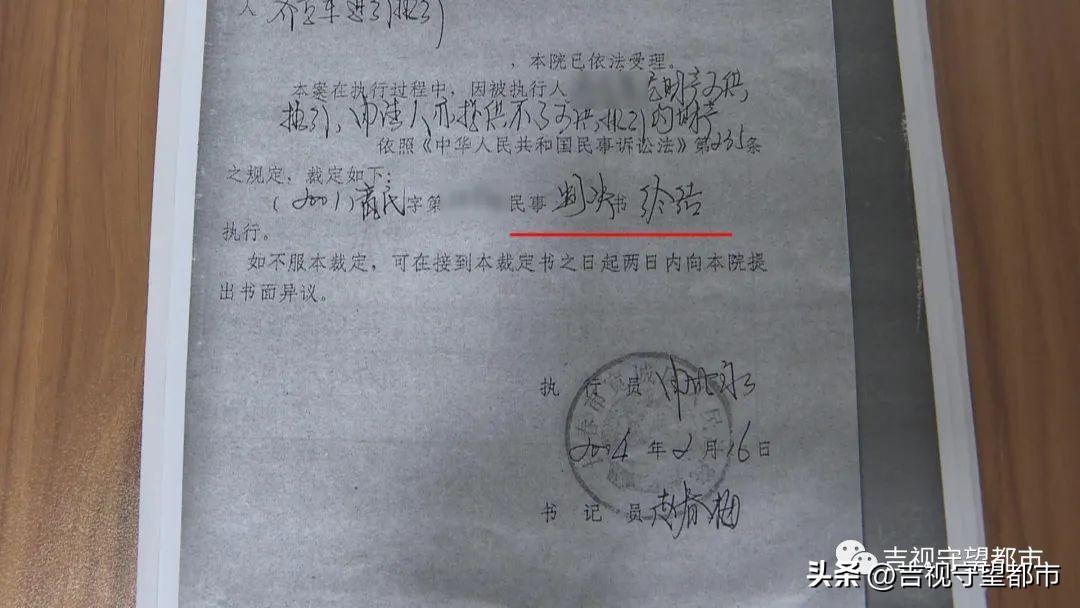 人
，本院已依法受理。
本案在执行过程中，因被执行人 无财产可供
执行，申请人亦提供不了可供执行的财产
依照《中华人民共和国民事诉讼法》第235条
之规定，裁定如下：
（2001）宽民字第 民事 判决 书 终结
执行。
如不服本裁定，可在接到本裁定书之日起两日内向本院提
出书面异议。
执 行 员
2004 年 2 月 16 日
书 记 员 赵春梅
吉视守望都市
头条 @吉视守望都市